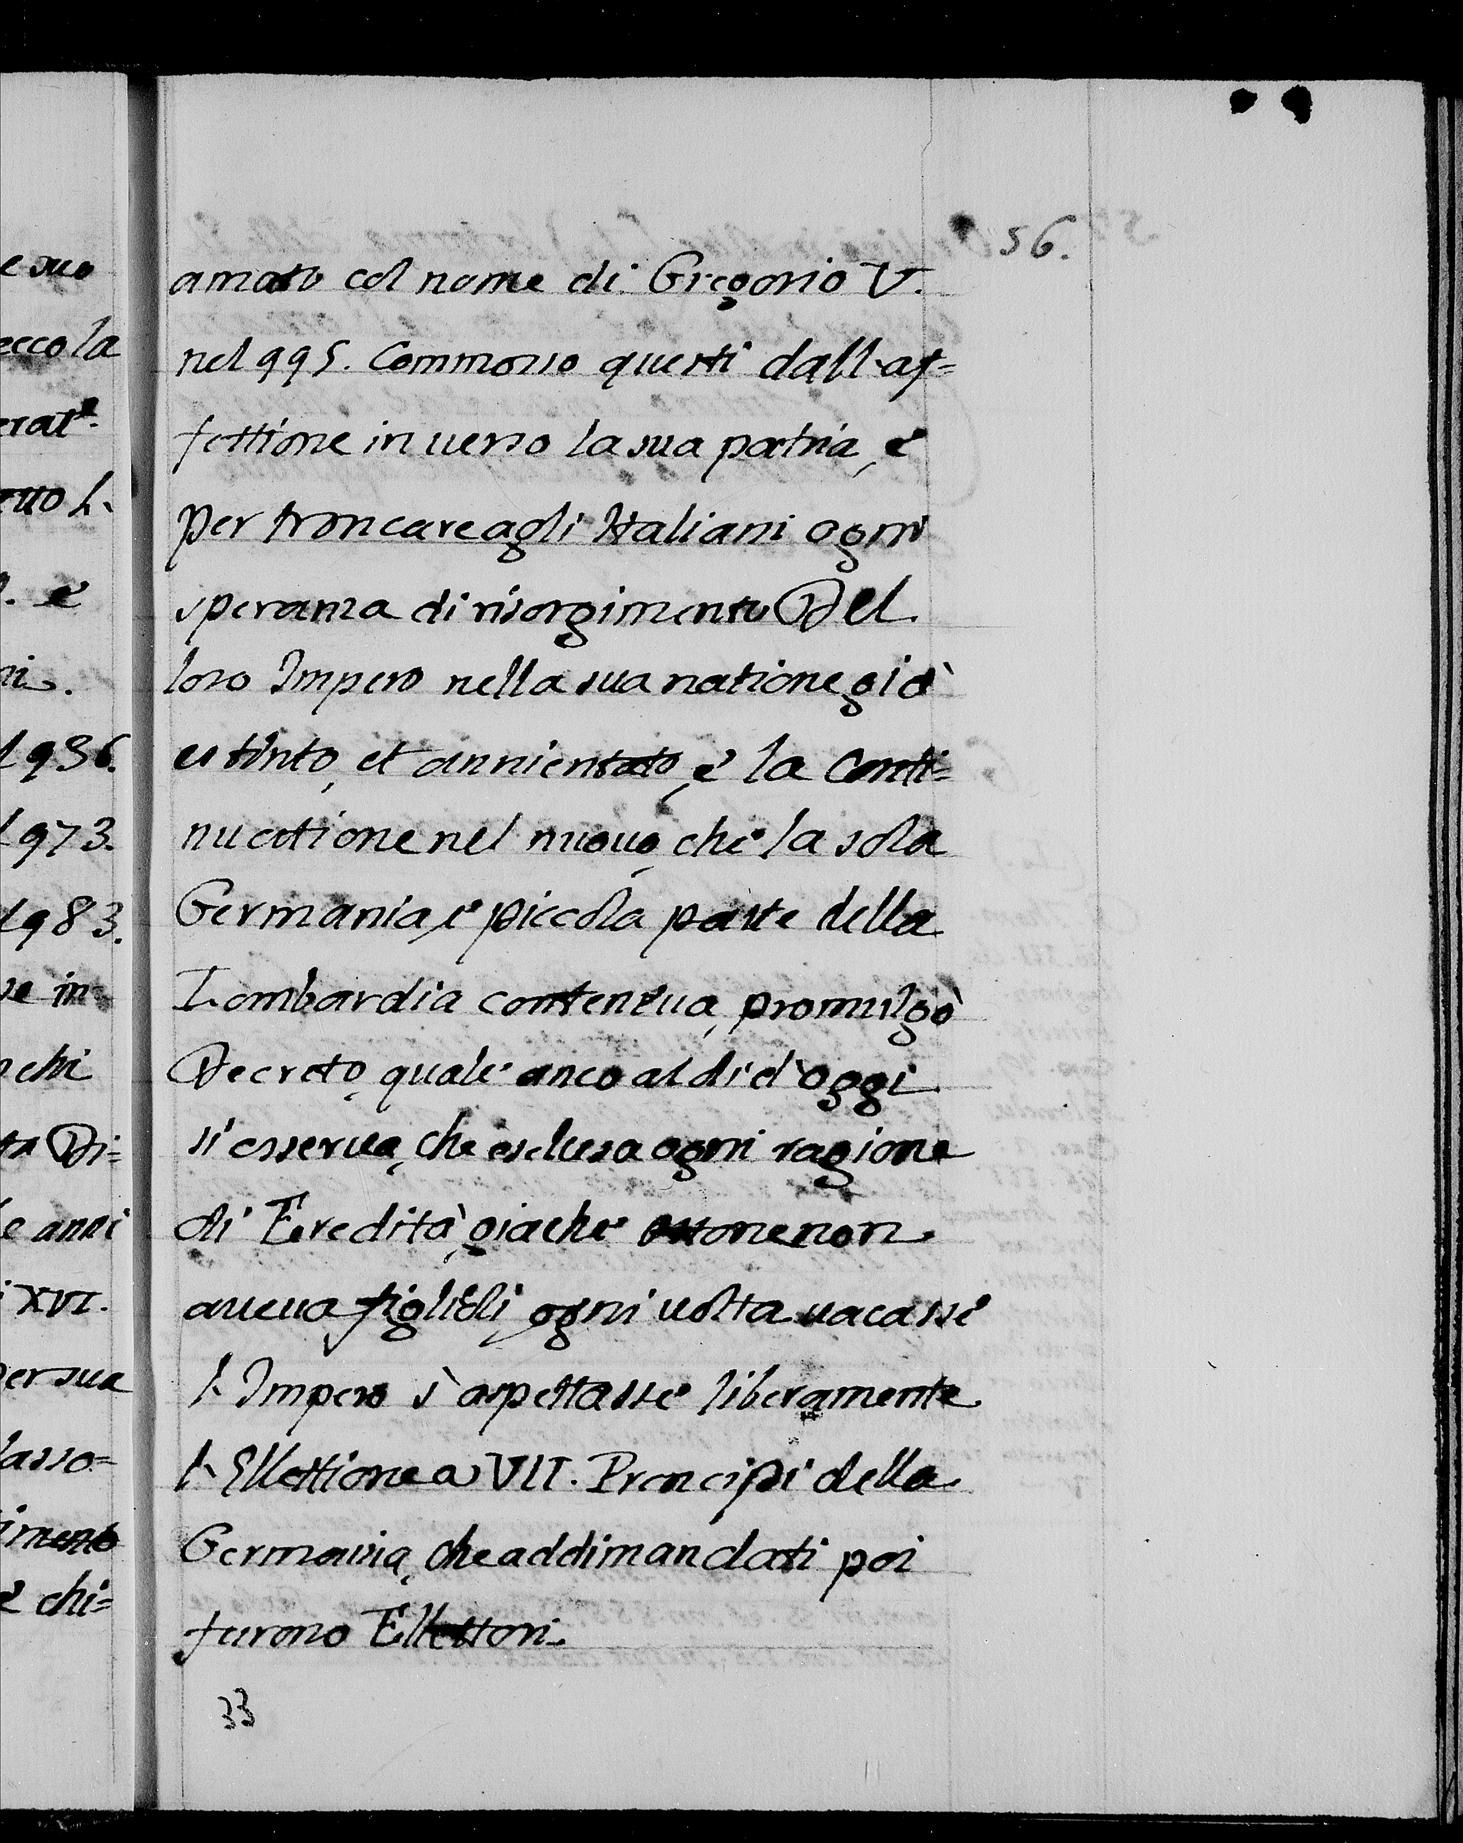 56.
amato col nome di Gregorio V.
nel 995. Commosso questi dall'af=
fettione in uerso la sua patria, e
per troncare agli Italiani ogni
speranza di risorgimento Del
loro Impero nella sua natione già
estinto, et annientato, e la Conti=
nuatione nel nuouo, che la sola
Germania, e piccola parte della
Lombardia conteneua, promulgò
Decreto, quale anco al dì d'oggi
si osserua, che esclusa ogni ragione
di Eredità, giache Ottone non
aueua figlioli, ogni uolta uacasse
l'Impero s'aspettasse liberamente
l'Ellettione a VII. Prencipi della
Germania, che addimandati poi
furono Ellettori.
33
e suo
ecco la
erat.e
l'
. e
ni.
l 936.
l 973.
l 983.
ue in=
chi
ta Di=
le anni
i XVI.
per sua
lasso=
timento
e chi=